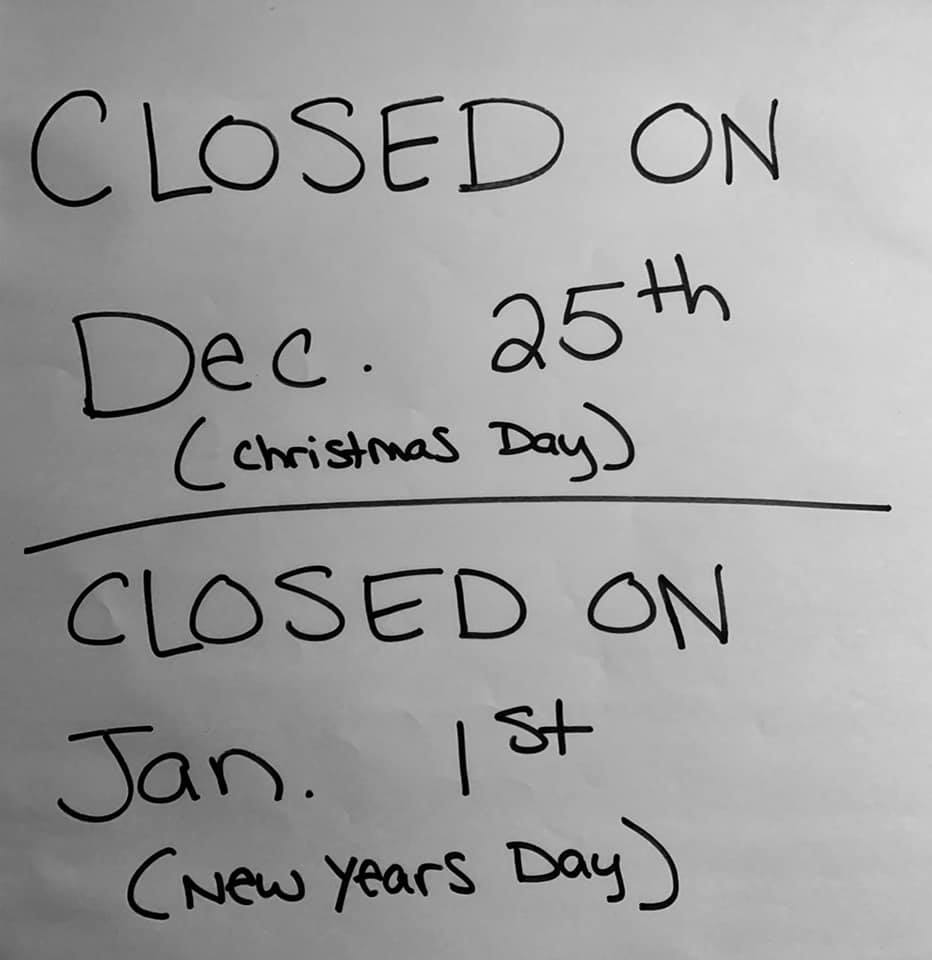 CLOSED ON
Dec. 25th
(Christmas Day)
CLOSED ON
Jan. 1st
(New Years Day)